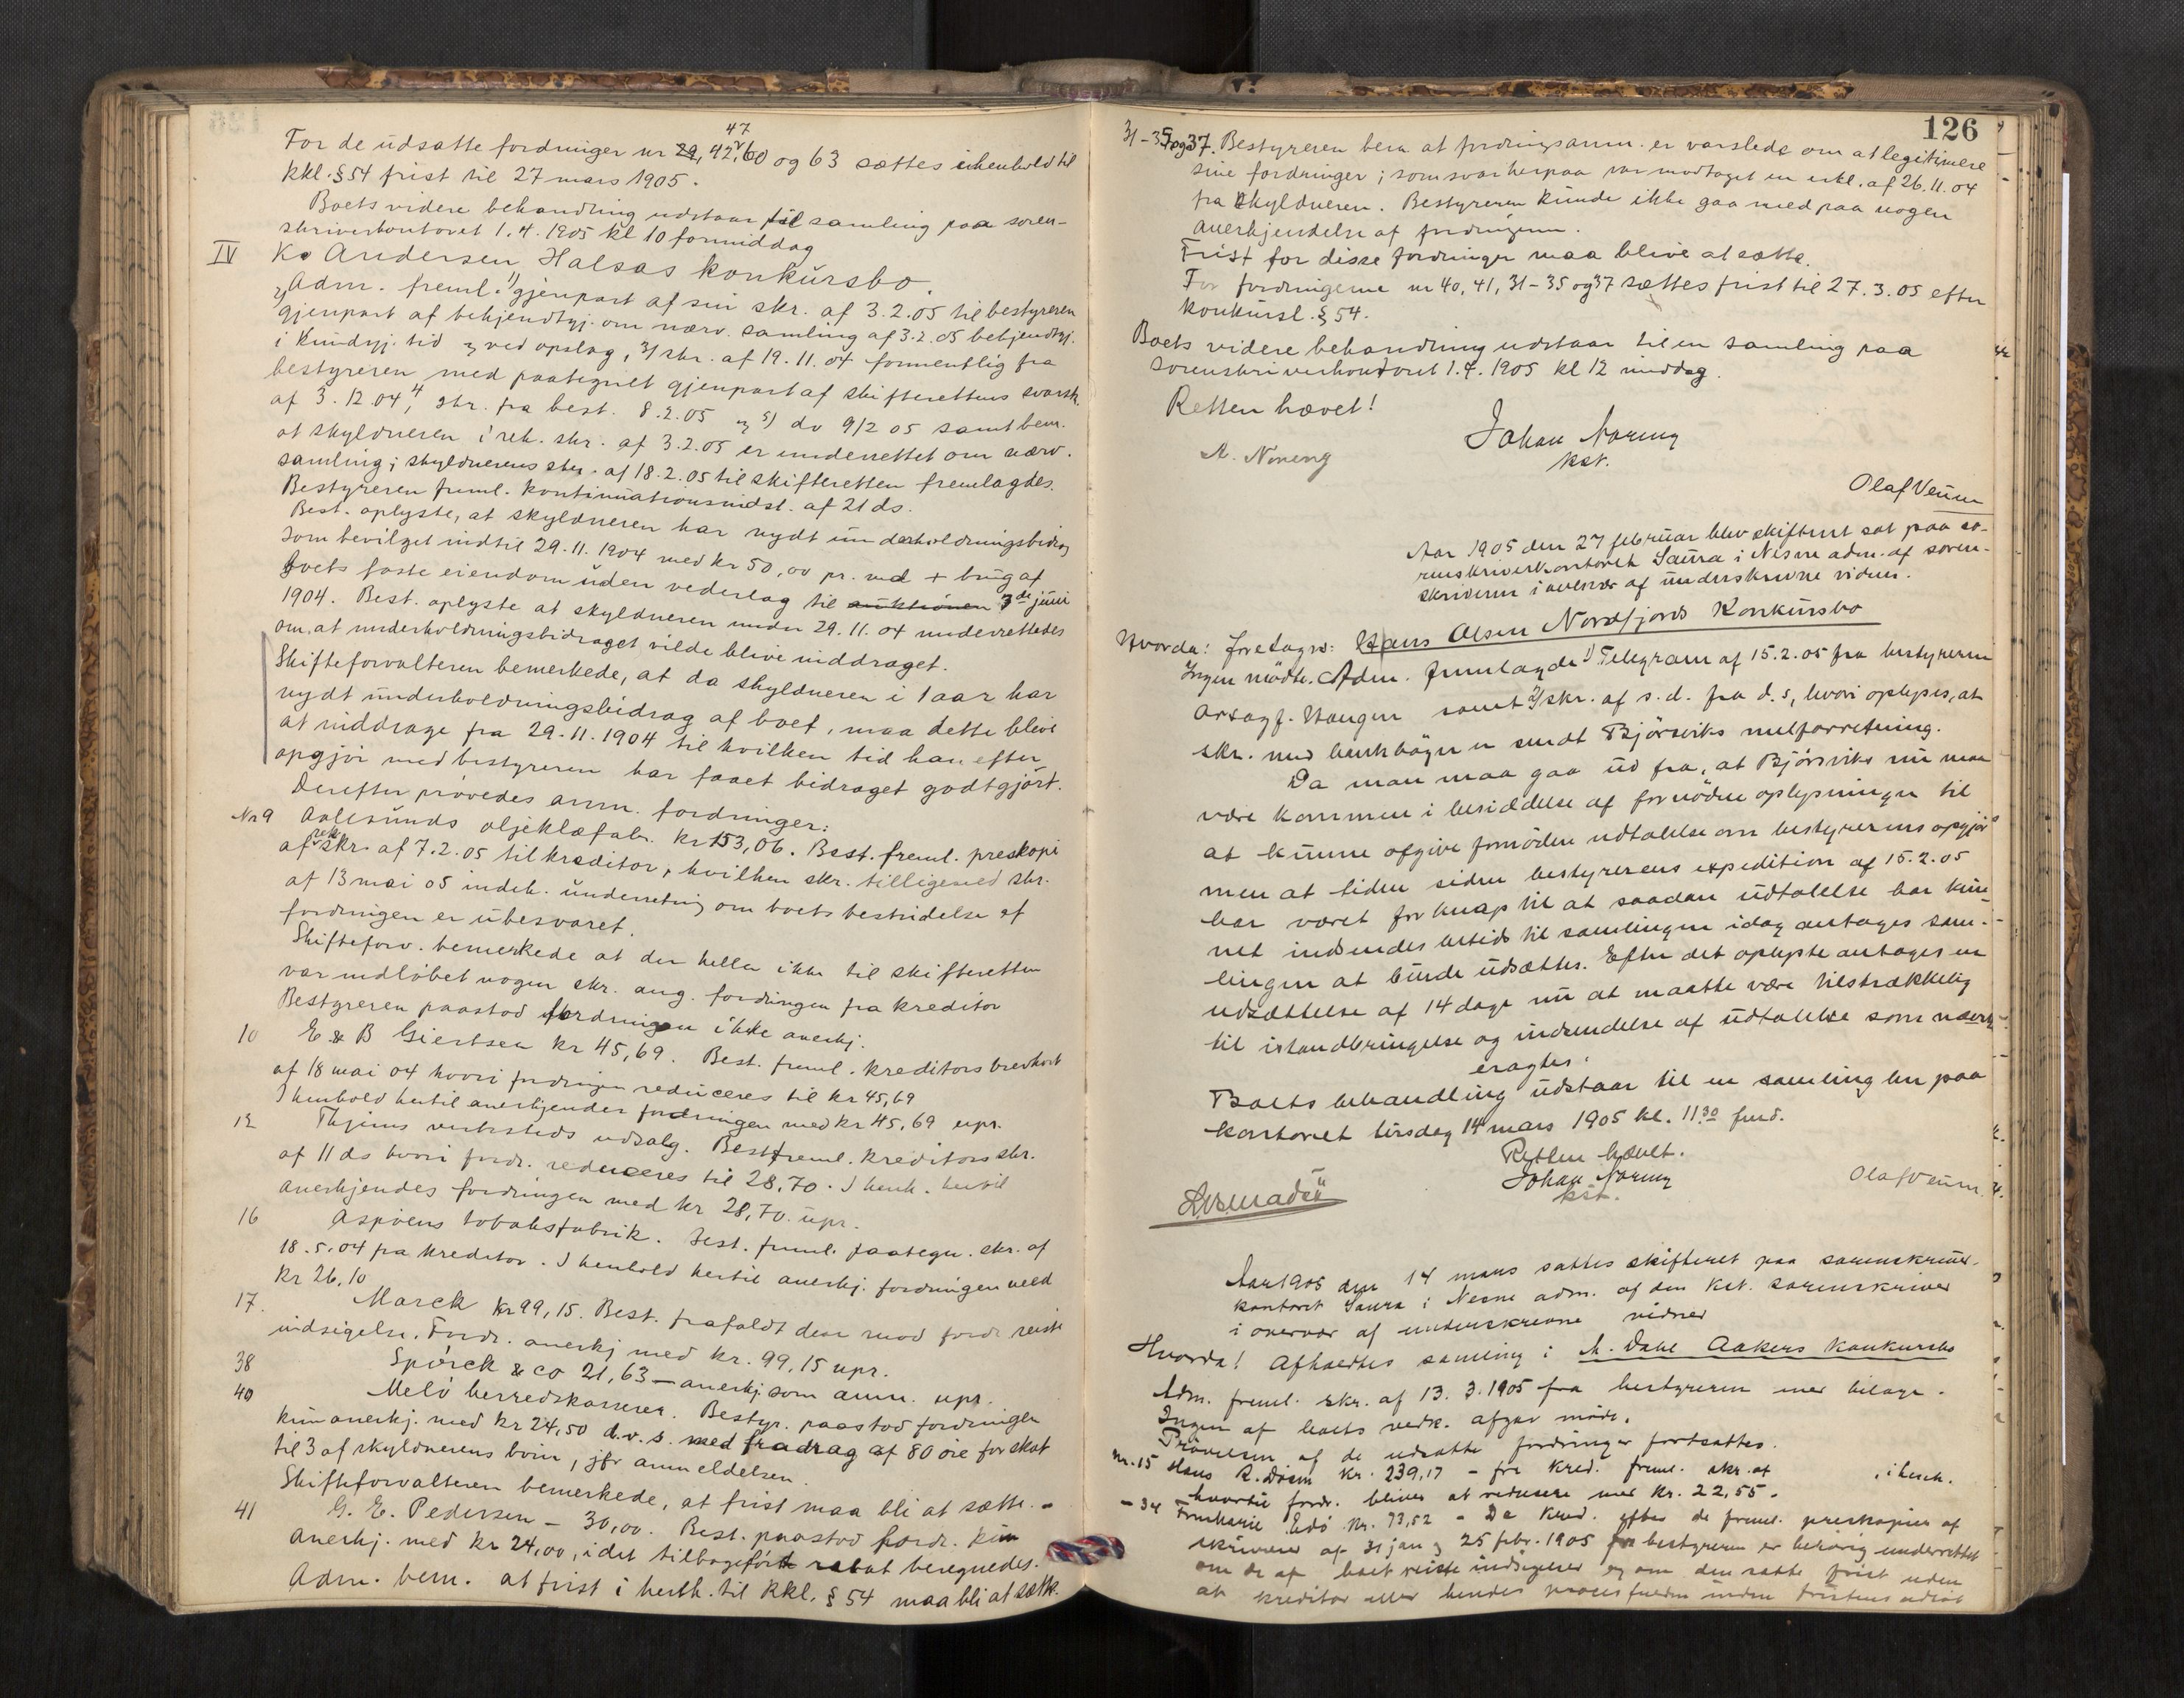 47
For de udsatte fordringer nr 29, 42, 60 og 63 sættes i henhold til
kkl. § 54 frist til 27 mars 1905.
Boets videre behandling udstaar til samling paa soren-
skriverkontoret 1.4.1905 kl 10 formiddag
IV K. Andersen Halsas konkursbo.
Adm. freml. 1) gjenpart af sin skr. af 3.2.05 til bestyreren
2) gjenpart af bekjendtgj. om nærv. samling af 3.2.05 bekjendtgj.
i Kundgj. tid og ved opslag, 3) skr. af 19.11.04 formentlig fra
bestyreren med paategnet gjenpart af skifterettens svarskr.
af 3.12.04, 4) skr. fra best. 8.2.05 og 5) do 9/2 05 samt bem.
at skyldneren i rek. skr. af 3.2.05 er underrettet om nærv.
samling; skyldnerens skr. af 18.2.05 til skifteretten fremlagdes.
Bestyreren freml. kontinuationsindst. af 21 ds.
Best. oplyste, at skyldneren har nydt underholdningsbidrag
som bevilget indtil 29.11.1904 med kr 50,00 pr. md + brug af
boets faste eiendom uden vederlag til auktionen 3de juni
1904. Best. oplyste at skyldneren under 29.11.04 underrettedes
om, at underholdningsbidraget vilde blive inddraget.
Skifteforvalteren bemerkede, at da skyldneren i 1 aar har
nydt underholdningsbidrag af boet, maa dette blive
at inddrage fra 29.11.1904 til hvilken tid han efter
opgjør med bestyreren har faaet bidraget godtgjort.
Derefter prøvedes anm. fordringer:
Nr 9 Aalesunds oljeklæfabr. kr 153,06. Best. freml. preskopi
af rek. skr. af 7.2.05 til kreditor, hvilken skr. tilligemed skr.
af 13 mai 05 indeh. underretning om boets bestridelse af
fordringen er ubesvaret.
Skifteforv. bemerkede at der heller ikke til skifteretten
var indløbet nogen skr. ang. fordringen fra kreditor
Bestyreren paastod fordringen ikke anerkj.
10 E & B Giertsen kr 45,69. Best. freml. kreditors brevkort
af 18 mai 04 hvori fordringen reduceres til kr 45,69
I henhold hertil anerkjendes fordringen med kr 45,69 upr.
12 Thjems verksteds udsalg. Best freml. kreditors skr.
af 11 ds hvori fordr. reduceres til 28,70. I henh. hertil
anerkjendes fordringen med kr 28,70 upr.
16 Aspøens tobaksfabrik. Best. freml. paategn. skr. af
18.5.04 fra kreditor. I henhold hertil anerkj. fordringen med
kr 26,10
17. Marck kr 99,15. Best. frafaldt den mod fordr. reiste
indsigelse. Fordr. anerkj med kr. 99,15 upr.
38 Spörck & co 21,63 – anerkj. som anm. upr.
40 Melö herredskasserer. Bestyr. paastod fordringen
kun anerkj. med kr 24,50 d.v.s. med fradrag af 80 øre for skat
til 3 af skyldnerens børn, jfr anmeldelsen
Skifteforvalteren bemerkede, at frist maa bli at sætte.
41 G. E. Pedersen – 30,00. Best. paastod fordr. kun
anerkj. med kr 24,00, idet tilbageført rabat beregnedes.
Adm. bem. at frist i henh. til kkl. § 54 maa bli at sætte.
126
31-35 og 37. Bestyreren bem at fordringsanm. er varslede om at legitimere
sine fordringer; som svar herpaa var modtaget en erkl. af 26.11.04
fra skyldneren. Bestyreren kunde ikke gaa med paa nogen
anerkjendelse af fordringerne.
Frist for disse fordringer maa blive at sætte.
For fordringerne nr 40, 41, 31-35 og 37 sættes frist til 27.3.05 efter
konkursl. § 54.
Boets videre behandling udstaar til en samling paa
sorenskriverkontoret 1.4.1905 kl 12 middag.
Retten hævet!
Johan Noreng
kst.
A. Noreng
Olaf Venun
Aar 1905 den 27 februar blev skifteret sat paa so-
renskriverkontoret Saura i Nesne adm. af soren-
skriveren i overvær af underskrevne vidner.
Hvorda: foretages: Hans Olsen Nordfjords Konkursbo
Ingen mødte. Adm. fremlagde 1) Telegram af 15.2.05 fra bestyreren
Haugen samt 2) skr. af s.d. fra d.s, hvori oplyses, at
skr. med er sendt Bjørsviks
Da man maa gaa ud fra, at Bjørsviks nu maa
være kommen i besiddelse af fornødne oplysninger til
at kunne afgive fornøden udtalelse om bestyrerens opgjør
men at tiden siden bestyrerens expedition af 15.2.05
har været for knap til at saadan udtalelse har kun-
net indsendes betids til samlingen idag antages sam-
lingen at burde udsættes. Efter det oplyste antages en
udsættelse af 14 dage nu at maatte være tilstrækkelig
til istandbringelse og indsendelse af udtalelse som nævnt
eragtes.
Boets behandling udstaar til en samling her paa
kontoret tirsdag 14 mars 1905 kl. 11.30 fmd.
Retten hævet.
Johan Noreng
kst.
Olaf Venun
Aar 1905 den 14 mars sattes skifteret paa sorenskriver-
kontoret Saura i Nesne adm. af den kst. sorenskriver
i overvær af underskrevne vidner
Hvorda! Afholdtes samling i A. Dahl Aakers konkursbo
Adm. freml. skr. af 13.3.1905 fra bestyreren med bilage.
Ingen af boets vedk. afgav møde.
Prøvelsen af de udsatte fordringer fortsattes.
Nr. 15 Hans R. Kr. 239,17 – fra kred. freml. skr. af , i henh.
hvortil fordr. bliver at redusere med Kr. 22,55.
– 34 Edö Kr. 73,52 – Da kred. efter de freml. preskopier af
skrivelser af 31 jan og 25 febr. 1905 fra bestyreren er behørig underrettet
om de af boet reiste indsigelser og om den satte frist uden
at kreditor eller hendes inden fristens udløb